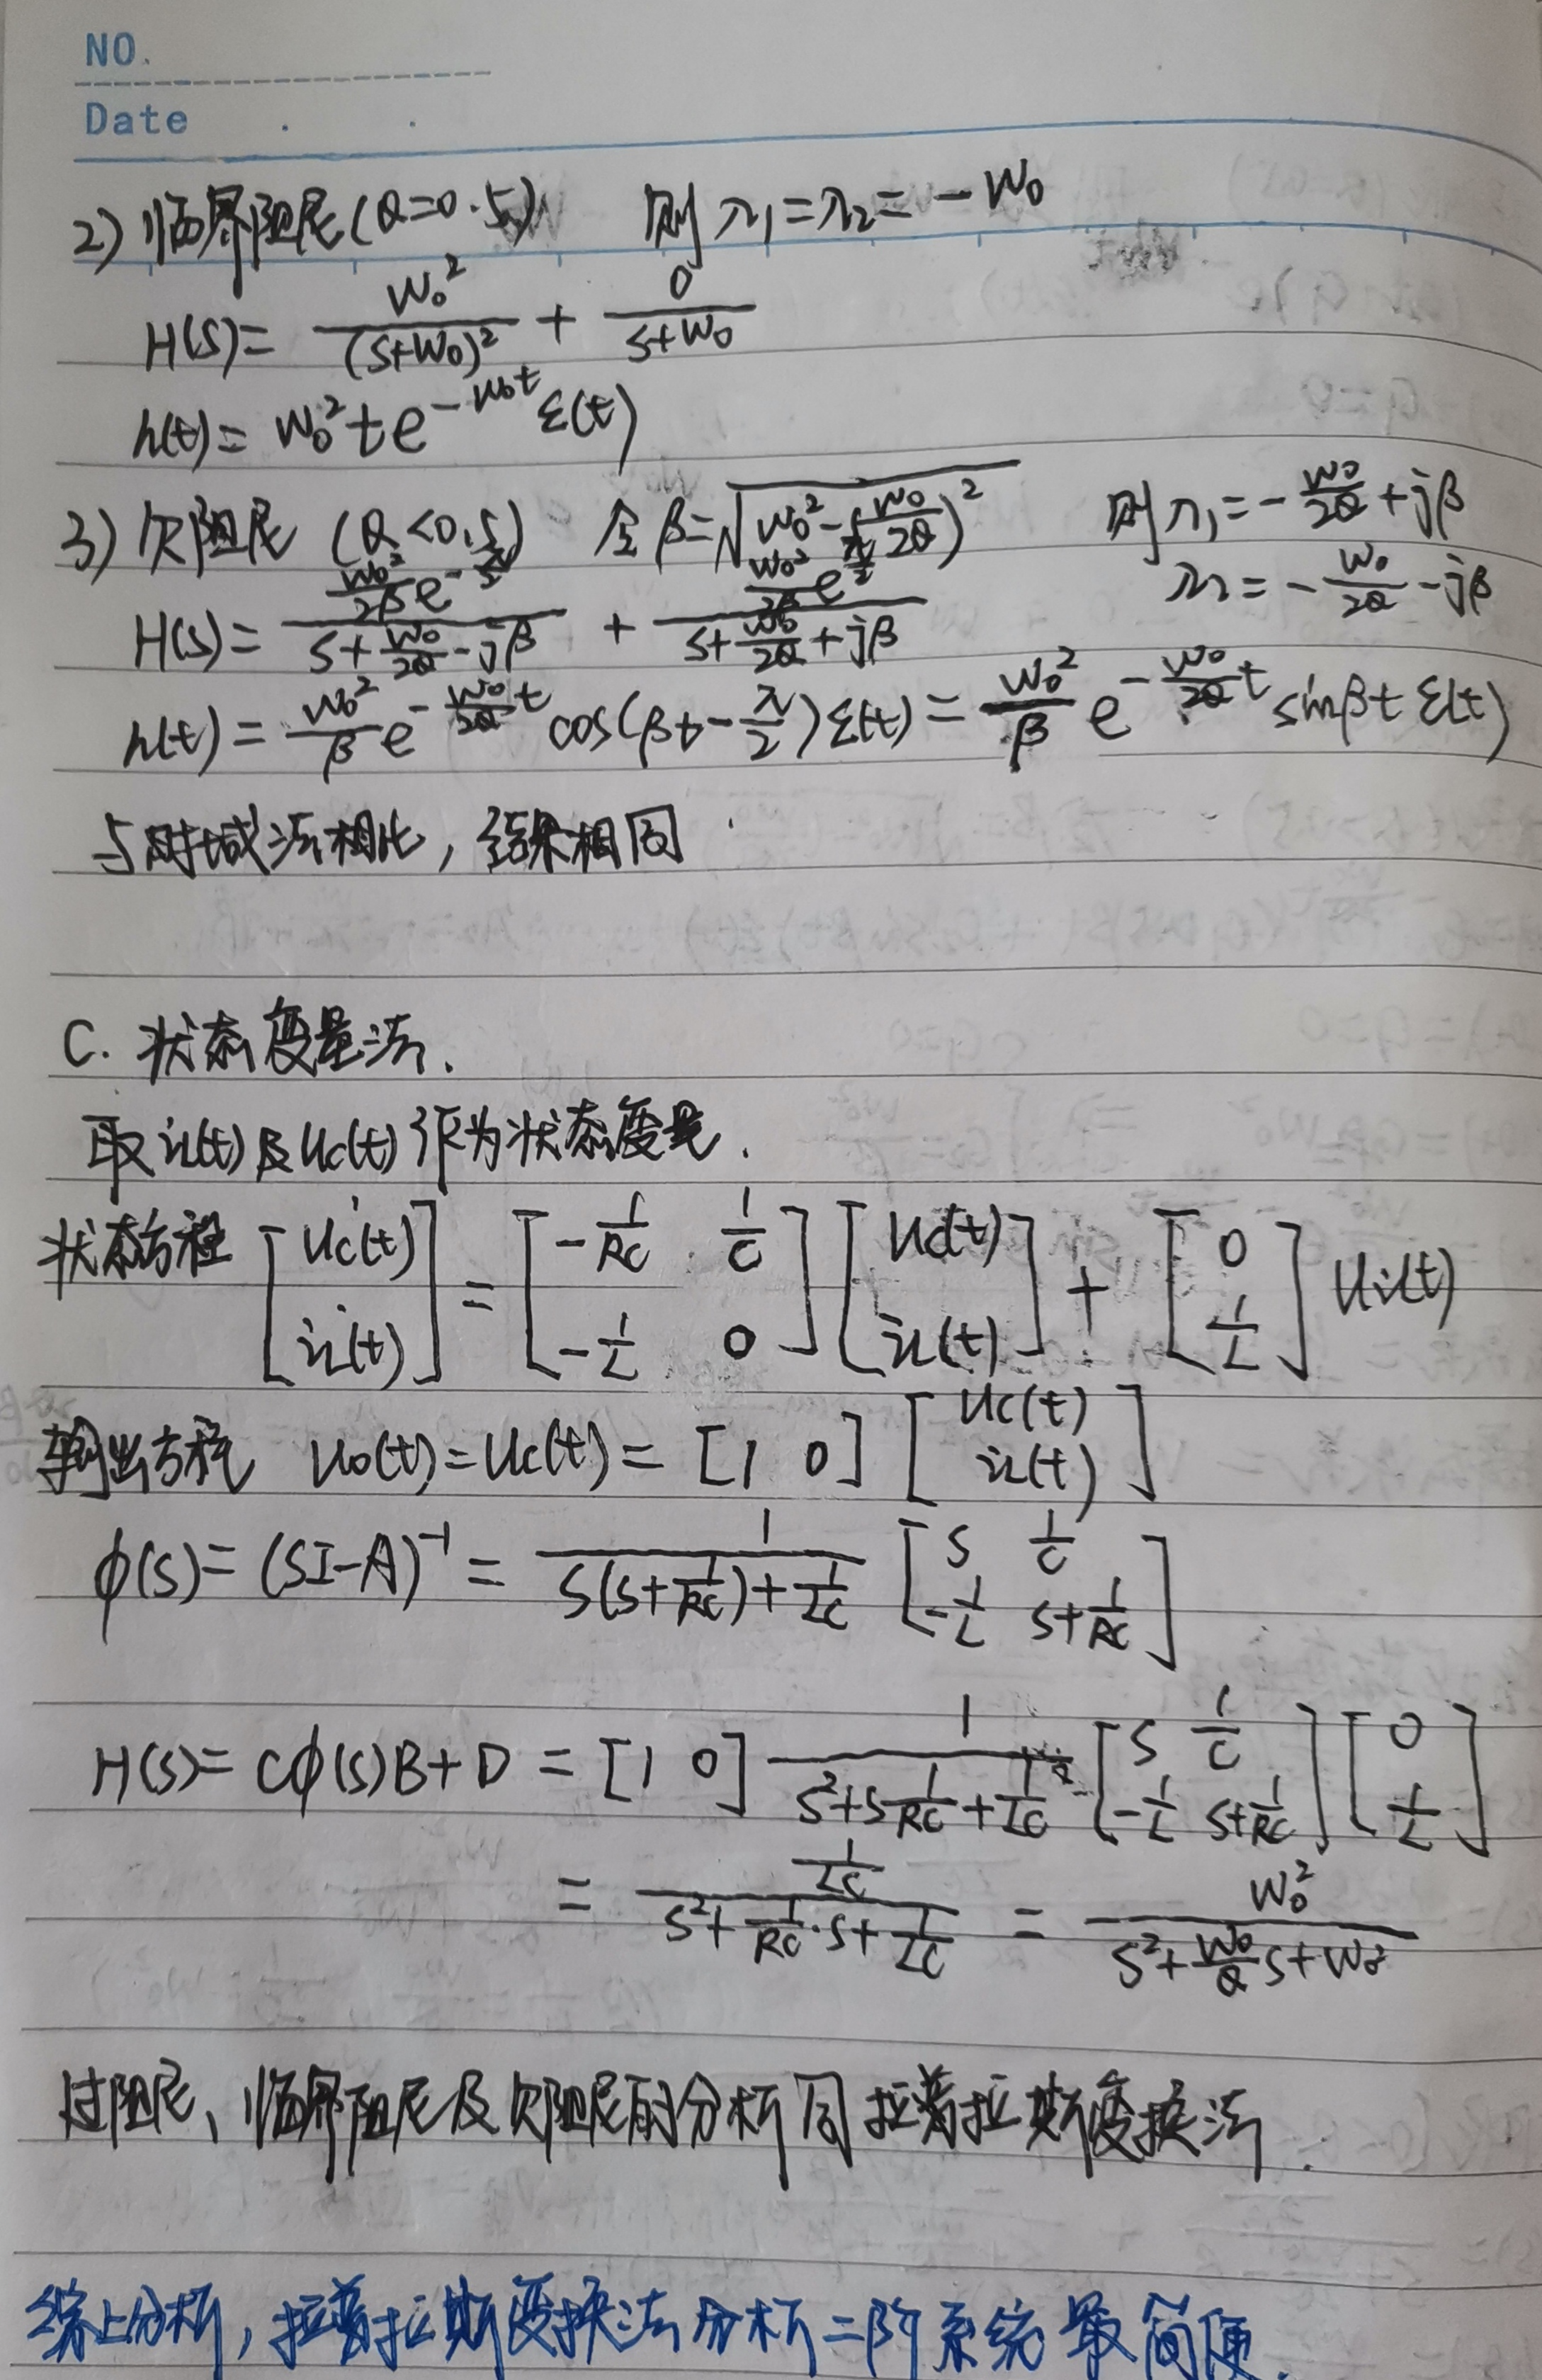 NO.
Date
2) 临界阻尼(Q=0.5) 则 λ₁=λ₂=-W₀
H(S)= W₀²/(S+W₀)² + 0/(S+W₀)
h(t)= W₀²te^(-W₀t) ε(t)
3) 欠阻尼 (Q<0.5) 令 β=√(W₀²-(W₀/2Q)²) 则 λ₁=-W₀/2Q+jβ
λ₂=-W₀/2Q-jβ
H(S)= (W₀²/2β e^(-π/2))/(S+W₀/2Q-jβ) + (W₀²/2β e^(π/2))/(S+W₀/2Q+jβ)
h(t)= W₀²/β e^(-W₀/2Q t) cos(βt-π/2)ε(t)= W₀²/β e^(-W₀/2Q t) sinβt ε(t)
与时域法相比,结果相同
C. 状态变量法.
取iL(t)及Uc(t)作为状态变量.
状态方程 [Uc'(t) ; iL'(t)] = [-1/RC 1/C ; -1/L 0] [Uc(t) ; iL(t)] + [0 ; 1/L] Ui(t)
输出方程 Uo(t)=Uc(t)= [1 0] [Uc(t) ; iL(t)]
φ(S)= (SI-A)⁻¹ = 1/(S(S+1/RC)+1/LC) [S 1/C ; -1/L S+1/RC]
H(S)= Cφ(S)B+D = [1 0] 1/(S²+S1/RC+1/LC) [S 1/C ; -1/L S+1/RC] [0 ; 1/L]
= (1/LC)/(S²+1/RC·S+1/LC) = W₀²/(S²+W₀/Q S+W₀²)
过阻尼、临界阻尼及欠阻尼的分析同拉普拉斯变换法.
综上分析,拉普拉斯变换法分析二阶系统最简便.